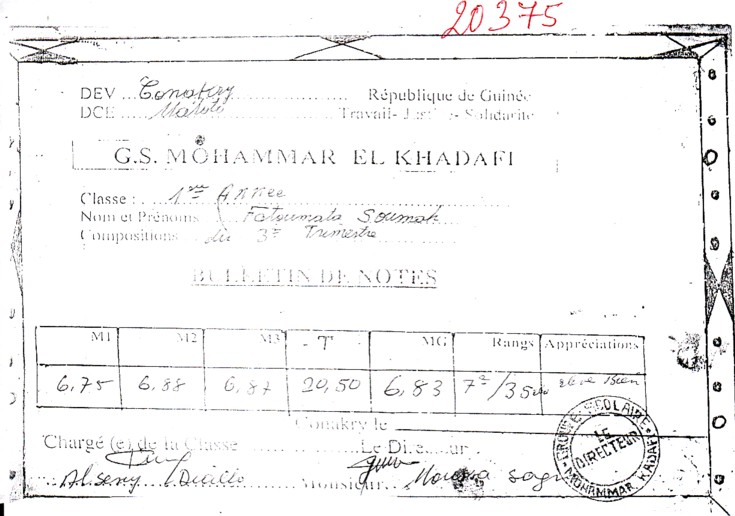 20375
DEV ... Conakry ............... République de Guinée
DCE ... Matoto ............... Travail- Justice- Solidarité
G.S. MOHAMMAR EL KHADAFI
Classe : .... 1ère Année ....
Nom et Prénoms Fatoumata Soumah
Compositions du 3e Trimestre
BULLETIN DE NOTES
M1 M2 M3 - T - MG Rangs Appréciations
6,75 6,88 6,87 20,50 6,83 7e/35 Bien
Conakry le
Chargé (e) de la Classe ............ Le Directeur
Alseny Diallo Monsieur.. Moussa
GROUPE SCOLAIRE
LE
DIRECTEUR
MOHAMMAR KADAFI